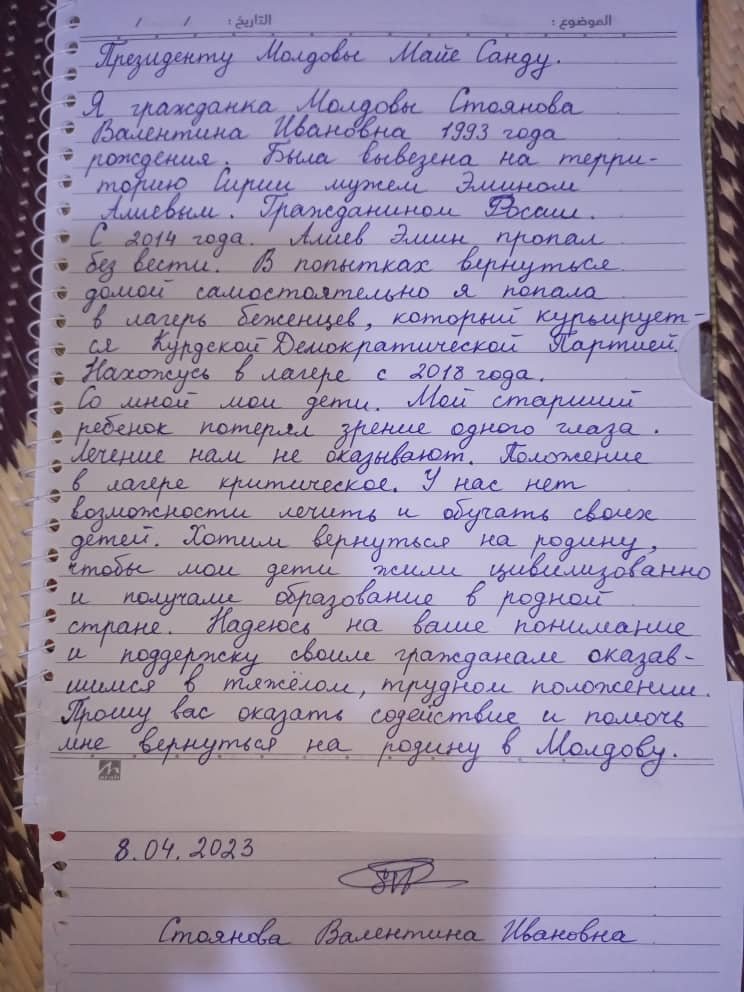 الموضوع : التاريخ : / /
Президенту Молдовы Майе Санду.
Я гражданка Молдовы Стоянова
Валентина Ивановна 1993 года
рождения. Была вывезена на терри-
торию Сирии мужем Эмином
Алиевым. Гражданином России.
С 2014 года. Алиев Эмин пропал
без вести. В попытках вернуться
домой самостоятельно я попала
в лагерь беженцев, который курьирует-
ся Курдской Демократической Партией.
Нахожусь в лагере с 2018 года.
Со мной мои дети. Мой старший
ребенок потерял зрение одного глаза.
Лечение нам не оказывают. Положение
в лагере критическое. У нас нет
возможности лечить и обучать своих
детей. Хотим вернуться на родину,
чтобы мои дети жили цивилизованно
и получали образование в родной
стране. Надеюсь на ваше понимание
и поддержку своим гражданам оказав-
шимся в тяжёлом, трудном положении.
Прошу вас оказать содействие и помочь
мне вернуться на родину в Молдову.
8.04.2023
Стоянова Валентина Ивановна